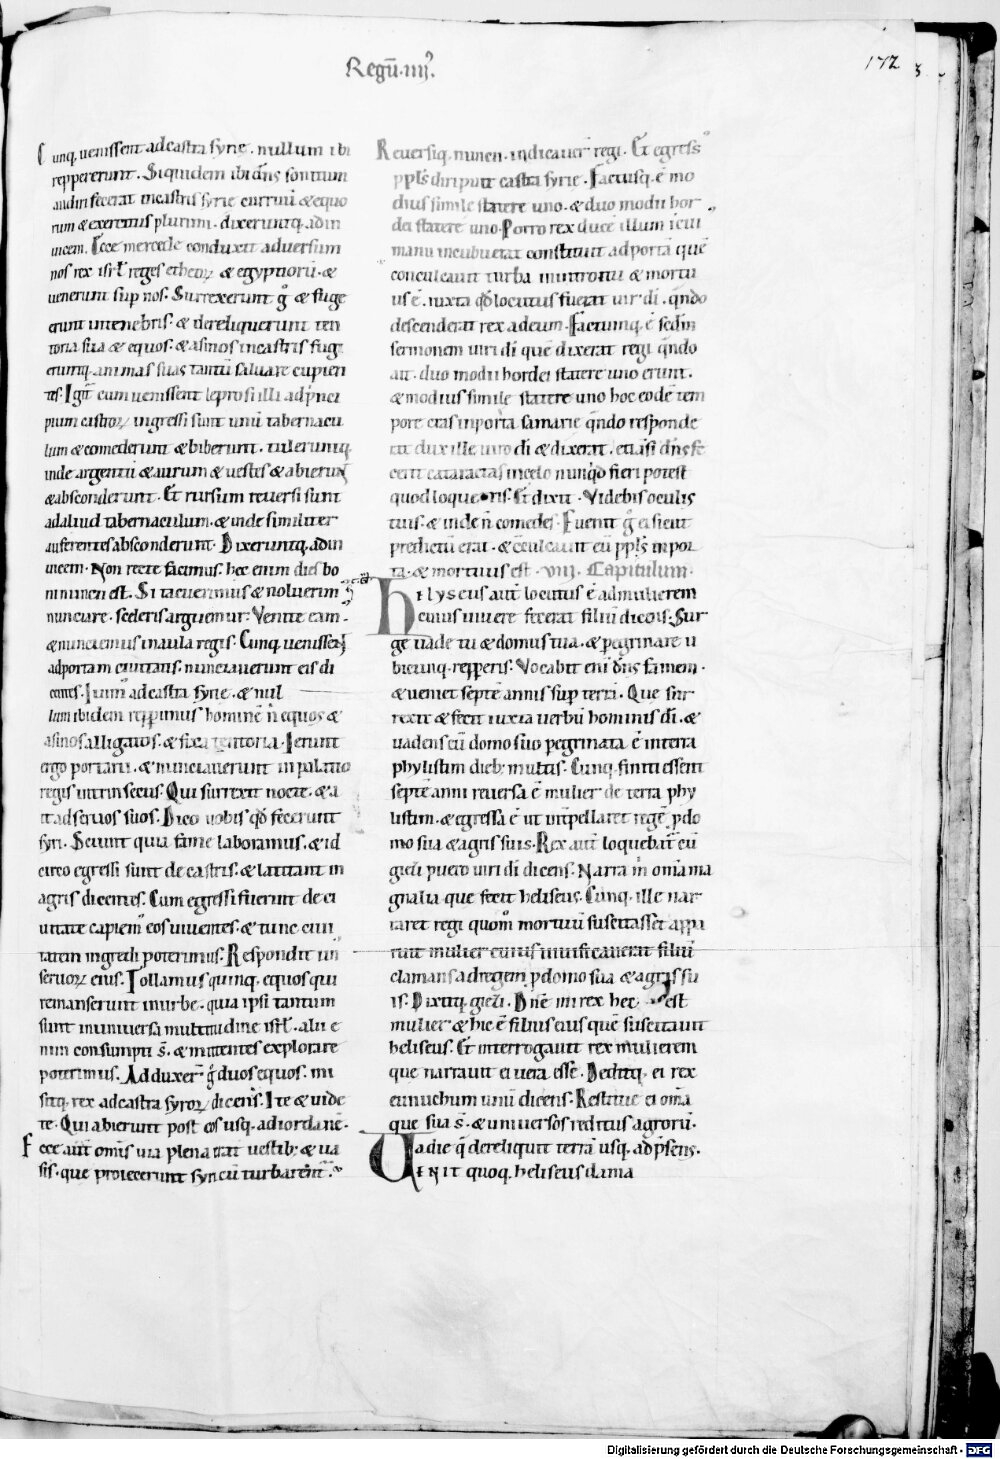 Regū·iiij᾽.
172
Cunq, uenissent ad castra syrię. nullum ibi
reppererunt. Siquidem ibi dn̄s sonitum
audiri fecerat in castris syrię curruū & equo
rum & exercitus plurimi. dixeruntq, ad in
uicem. Ecce mercede conduxit aduersum
nos rex isrl̄ reges etheoꝝ & egyptiorū. &
uenerunt sup nos. Surrexerunt g̊ & fuge
erunt in tenebris. & dereliquerunt ten
toria sua & equos. & asinos in castris fugi
eruntq, animas suas tantū saluare cupien
tes. Igit̄ cum uenissent leprosi illi ad p̄nci
pium castroꝝ ingressi sunt unū tabernacu
lum & comederunt & biberunt. tulerunt q,
inde argentū & aurum & uestes & abierunt
& absconderunt. Et rursum reuersi sunt
ad aliud tabernaculum. & inde similiter
auferentes absconderunt. Dixeruntq, ad in
uicem. Non recte facimus. hęc enim dies bo
ni nuncii est. Si tacuerimus & noluerim᾽
nunciare. sceleris arguemur. Venite eam᾽
& nunciemus in aula regis. Cunq, uenissent
ad portam ciuitatis. nunciauerunt eis di
centes. Iuim᾽ ad castra syrię. & nul
lum ibidem repperimus hominē ñ equos &
asinos alligatos. & fixa tentoria. Ierunt
ergo portarii. & nunciauerunt in palatio
regis intrinsecus. Qui surrexit nocte. & a
it ad seruos suos. Dico uobis qd̄ fecerunt
syri. Sciunt quia fame laboramus. & id
circo egressi sunt de castris. & latitant in
agris dicentes. Cum egressi fuerint de ci
uitate capiem᾽ eos uiuentes. & tunc ciui
tatem ingredi poterimus. Respondit un᾽
seruoꝝ eius. Tollamus quinq, equos qui
remanserunt in urbe. quia ipsi tantum
sunt in uniuersa multitudine isrl̄. alii e
nim consumpti s̄. & mittentes explorare
poterimus. Adduxer̄ g̊ duos equos. mi
sitq, rex ad castra syroꝝ dicens. Ite & uide
te. Qui abierunt post eos usq, ad iordanē.
Ecce aūt omīs uia plena erat uestib; & ua
sis. que proiecerunt syri cū turbarent᾽.
Reuersiq, nuncii. indicauer̄ regi. Et egress᾽
ppl̄s diripuit castra syrię. Factusq, ē mo
dius simile statere uno. & duo modii hor
dei statere uno. Porro rex ducē illum in cui᾽
manu incubuerat constituit ad portā quē
conculcauit turba in introitu & mortu
us ē. iuxta qd̄ locutus fuerat uir dī. qn̄do
descenderat rex ad eum. Factumq, ē scd̄m
sermonem uiri dī quē dixerat regi qn̄do
ait. duo modii hordei statere uno erunt.
& modius simile statere uno hoc eodē tem
pore cras in porta samarię qn̄do responde
rat dux ille uiro dī & dixerat. etiā si dn̄s fe
cerit cataractas in cęlo nunqd̄ fieri potest
quod loqueris. Et dixit. Videbis oculis
tuis. & inde ñ comedes. Fuerit g̊ ei sicut
predictū erat. & cc̄ulcauit eū ppl̄s in por
ta. & mortuus est. viij. Capitulum.
Helyseus aūt locutus ē ad mulierem
cuius uiuere fecerat filiū dicens. Sur
ge uade tu & domus tua. & pegrinare u
bicunq, repperis. Vocabit eni dn̄s famem.
& ueniet septē annis sup terrā. Que sur
rexit & fecit iuxta uerbū hominis dī. &
uadens cū domo suo pegrinata ē in terra
phylistim dieb; multis. Cunq, finiti essent
septē anni reuersa ē mulier de terra phy
listim. & egressa ē ut int̄pellaret regē p do
mo sua & agris suis. Rex aūt loquebat̄ cū
giezi puero uiri dī dicens. Narra m̄ omīa ma
gnalia que fecit heliseus. Cunq, ille nar
raret regi quom̊ mortuū suscitasset appa
ruit mulier cuius uiuificauerat filiū
clamans ad regem p domo sua & agris su
is. Dixitq, giezi. Dn̄e mi rex hęc est
mulier & hic ē filius eius quē suscitauit
heliseus. Et interrogauit rex mulierem
que narrauit ei uera esse. Deditq, ei rex
eunuchum unū dicens. Restitue ei omīa
que sua s̄. & uniuersos reditus agrorū.
A die q̄ dereliquit terrā usq, ad p̄sens.
Venit quoq, heliseus dama
Digitalisierung gefördert durch die Deutsche Forschungsgemeinschaft - DFG